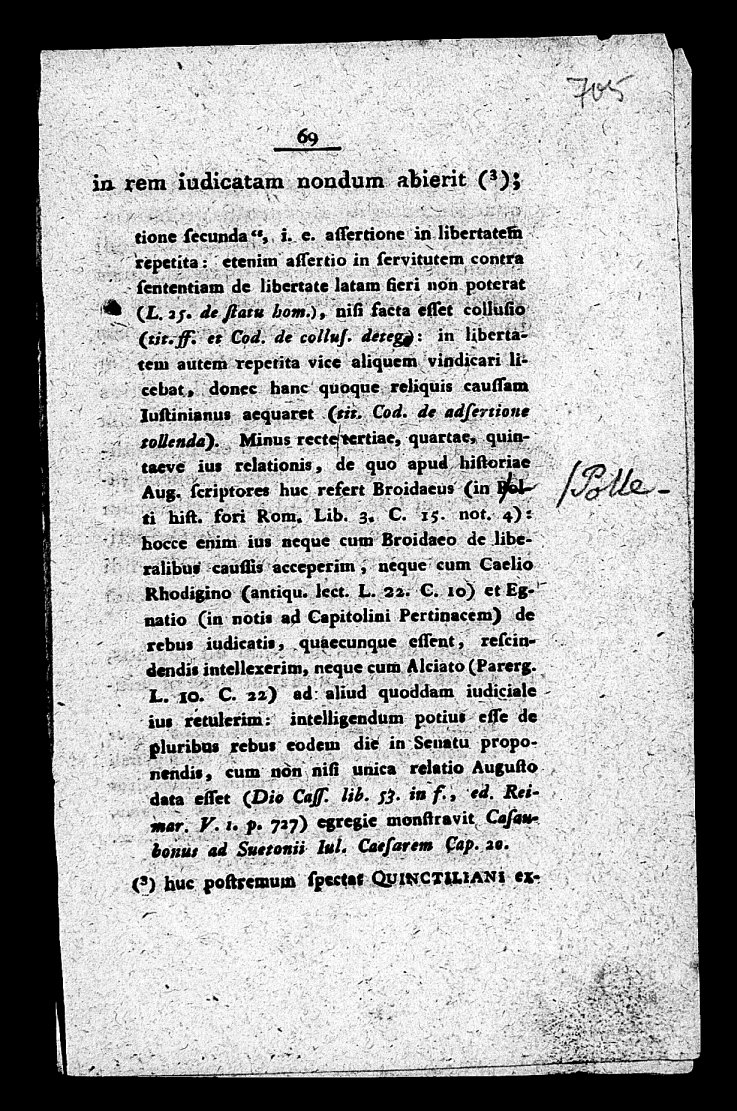 705
69
in rem iudicatam nondum abierit (³);
tione ſecunda“, i. e. aſſertione in libertatem
repetita: etenim aſſertio in ſervitutem contra
ſententiam de libertate latam fieri non poterat
(L. 25. de ſtatu hom.), niſi facta eſſet colluſio
(tit. ff. et Cod. de colluſ. deteg.): in liberta-
tem autem repetita vice aliquem vindicari li-
cebat, donec hanc quoque reliquis cauſſam
Iuſtinianus aequaret (tit. Cod. de adſertione
tollenda). Minus recte tertiae, quartae, quin-
taeve ius relationis, de quo apud hiſtoriae
Aug. ſcriptores huc refert Broidaeus (in Pol-
/Polle-
ti hiſt. fori Rom. Lib. 3. C. 15. not. 4):
hocce enim ius neque cum Broidaeo de libe-
ralibus cauſſis acceperim, neque cum Caelio
Rhodigino (antiqu. lect. L. 22. C. 10) et Eg-
natio (in notis ad Capitolini Pertinacem) de
rebus iudicatis, quaecunque eſſent, reſcin-
dendis intellexerim, neque cum Alciato (Parerg.
L. 10. C. 22) ad aliud quoddam iudiciale
ius retulerim: intelligendum potius eſſe de
pluribus rebus eodem die in Senatu propo-
nendis, cum non niſi unica relatio Auguſto
data eſſet (Dio Caſſ. lib. 53. in f., ed. Rei-
mar. V. 1. p. 727) egregie monſtravit Caſau-
bonus ad Suetonii Iul. Caeſarem Cap. 20.
(³) huc poſtremum ſpectat QUINCTILIANI ex-